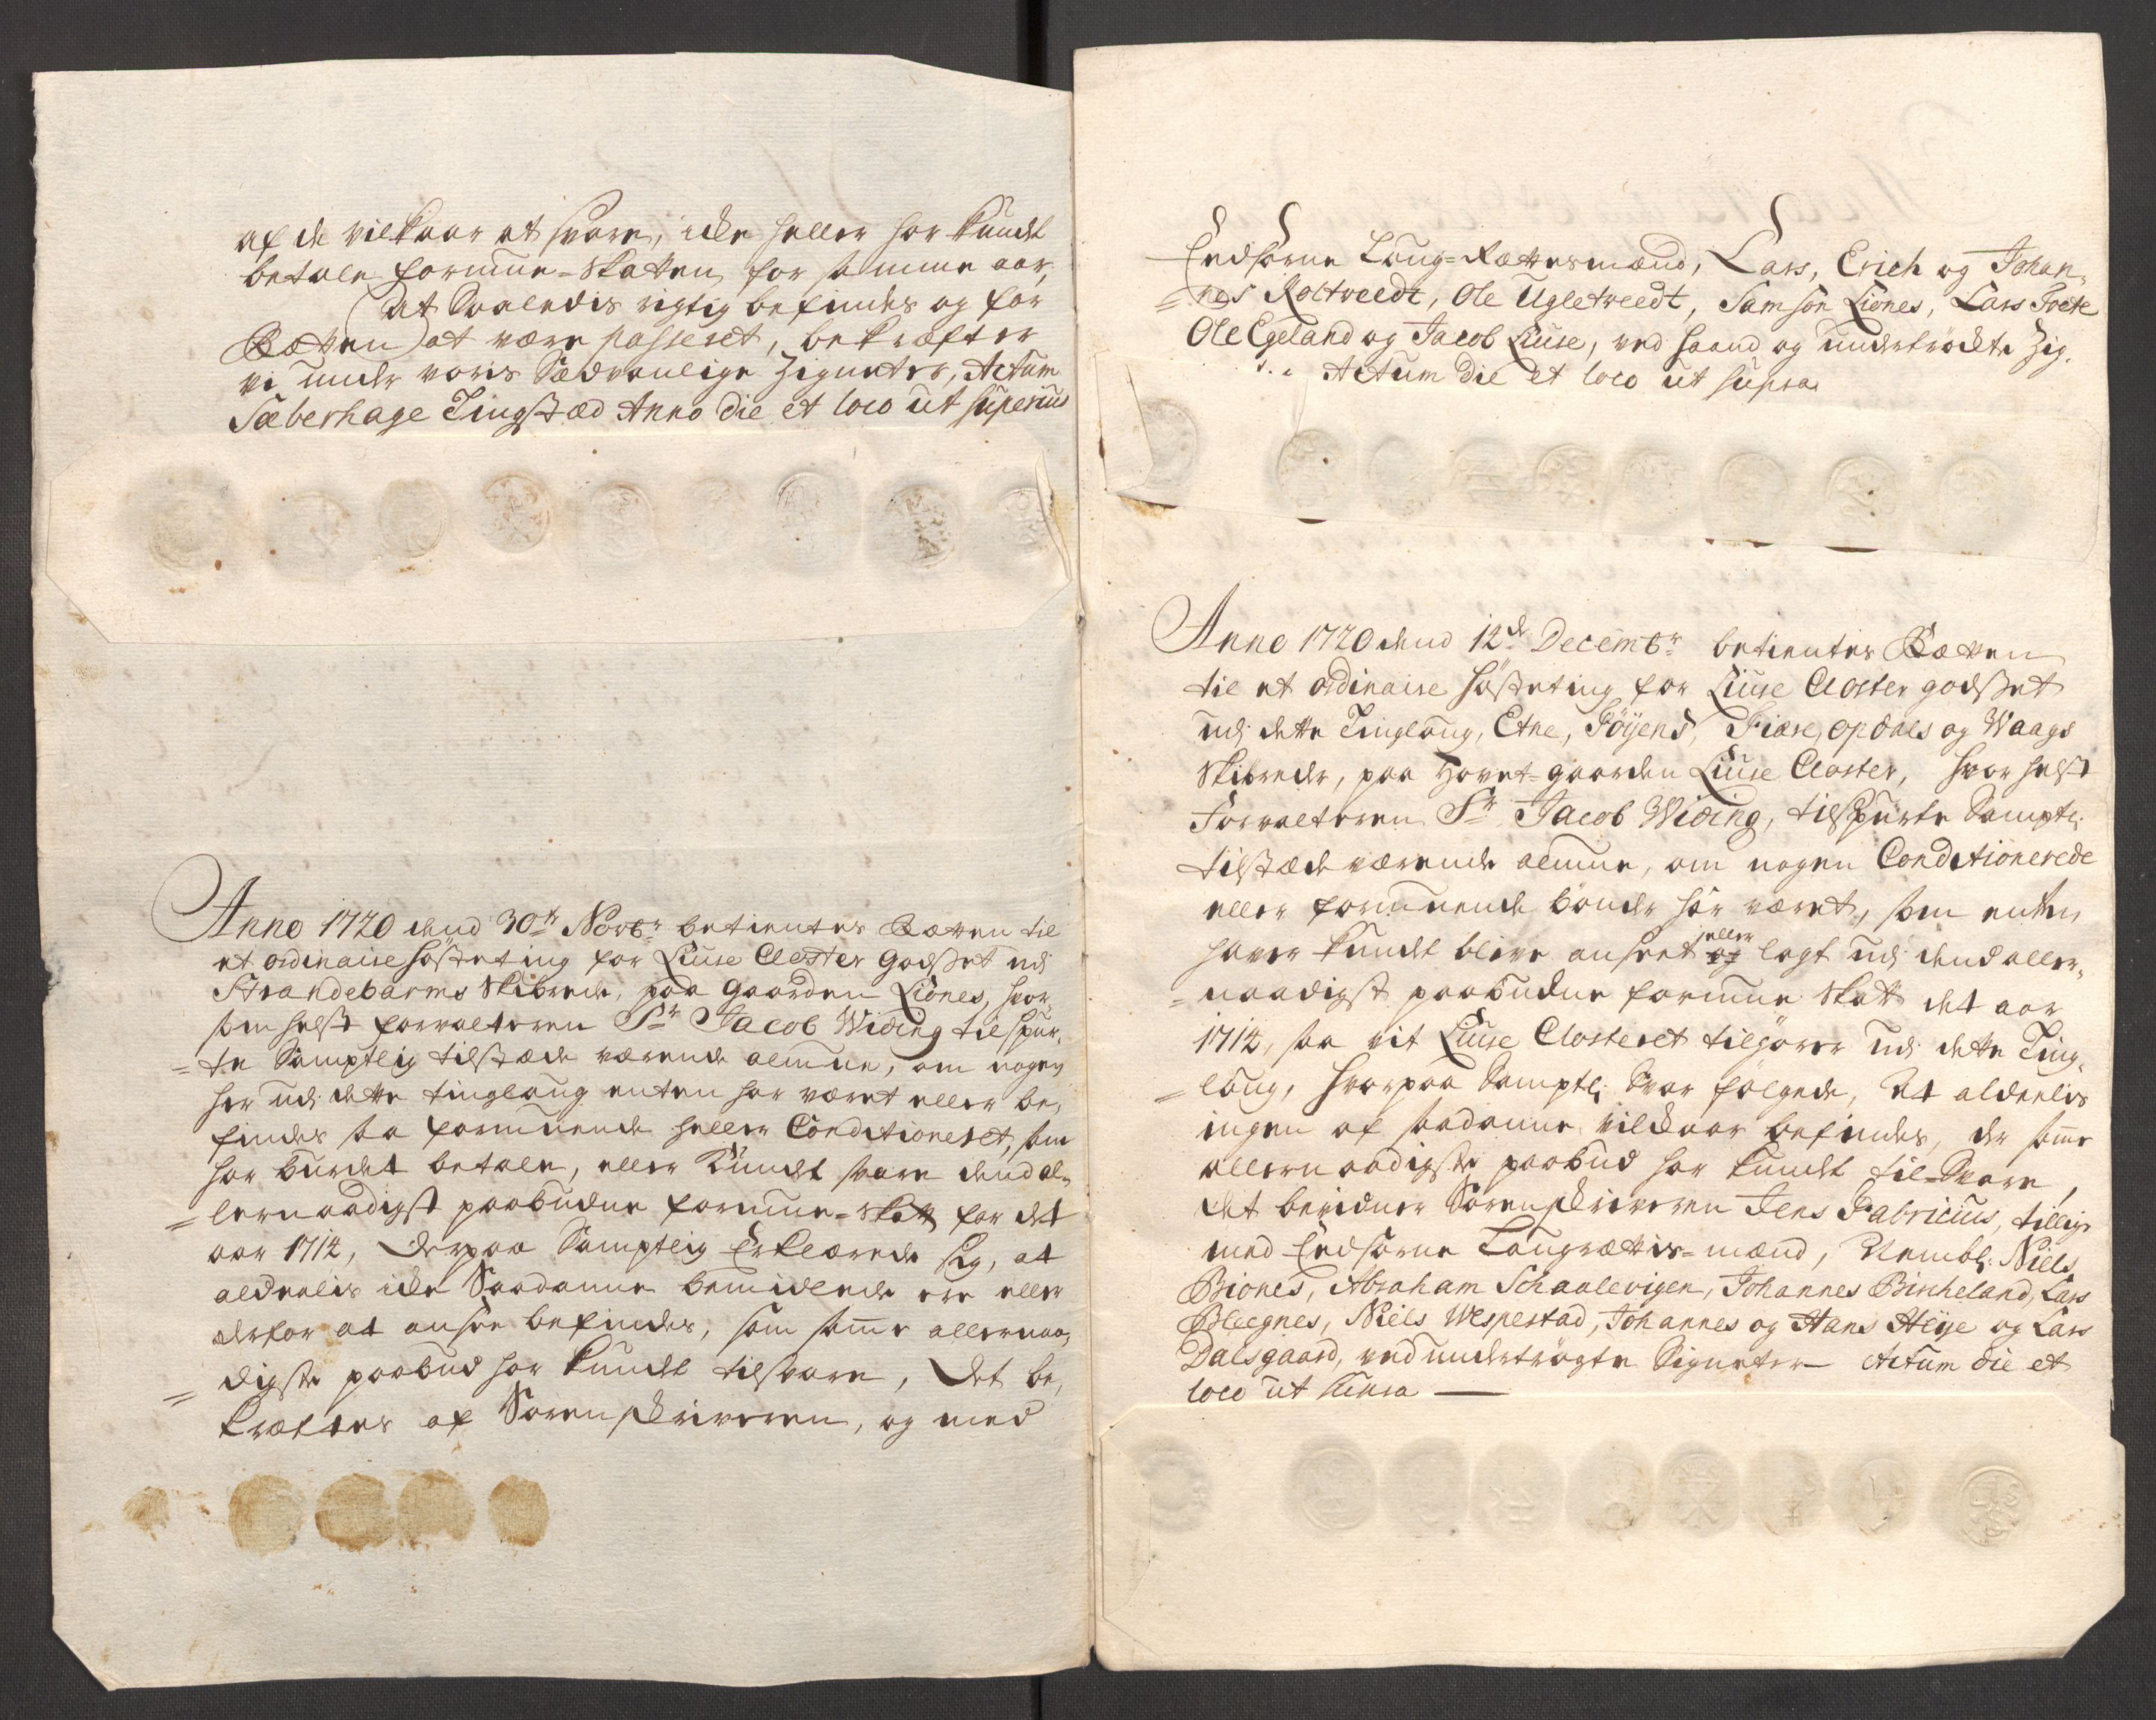 af de vilkaar at svare, icke heller har kundt
betale formue-skatten for samme aar,
At Saaledis rigtig befindes og for
Rætten at være passeret, bekræfter
vi under voris Sædvanlige Zigneter, Actum
Sæberhage Tingstæd Anno die et loco ut superius
Anno 1720 dend 30te Novbr betientes Rætten til
et ordinaire høsteting for Liuse Closter Godset udj
Strandebarms Skibrede, paa gaarden Liones, hvor
som helst forvalteren Sr Jacob Widing tilspur-
=te Samptlig tilstæde værende almue, om nogen
her udj dette tinglaug enten har været eller be,
findes saa formuende heller Conditioneret, som
har burdet betale, eller kundt svare dend al-
=lernaadigst paabudne formue-skatt for det
aar 1714, Derpaa Samptlig Erklærede sig, at
aldeelis icke Saadanne bemidlede ere eller
derfor at ansee befindes, som samme allernaa,
=digste paabud har kundt tilsvare, Det be,
kræftes af Sorenskriveren, og med
Eedsorne Laug-Rættesmænd, Lars, Erich og Johan,
=nes Roltveedt, Ole Ugletveedt, Samson Liones, Lars Tvete
Ole Egeland og Jacob Liuse, ved haand og undertrøckte Zig.
Actum Die et loco ut supra
Anno 1720 dend 12de Decembr betientes Rætten
til et ordinaire høsteting for Liuse Closter godset
udj dette Tinglaug, Etne, Føyens, Fiære, Opdals og Waags
Skibreder, paa Hovet-gaarden Liuse Closter, hvor helst
Forvalteren Sr Jacob Widing, tilspurte Samptl:
tilstæde værende almue, om nogen Conditionerede
eller formuende bønder her været, som enten
haver kundt blive anseet og eller lagt udj dend aller,
=naadigst paabudne formue skatt det aar
1714, saa vit Liuse Closteret tilhører udj dette Ting,
=laug, hvorpaa Samptl: Svar følgede, At aldeelis
ingen af saadanne vilckaar befindes, der samme
allernaadigste paabud har kundt til-Svare,
det bevidner Sorenskriveren Jens Fabricius, tillige
med Eedsorne Laugrættis-mænd, Nembl: Niels
Biones, Abraham Schaalevigen, Johannes Bircheland, Lars
Bleegnes, Niels Wespestad, Johannes og Hans Høye og Lars
Dalsgaard, ved undertrøgte Signeter Actum die et
loco ut supra